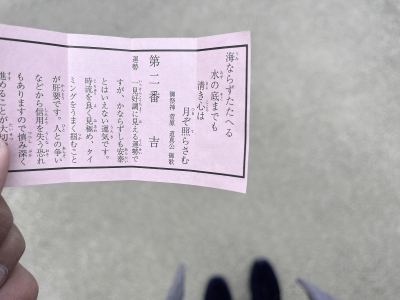 海ならずたたへる
水の底までも
清き心は
月ぞ照らさむ
御祭神 菅原 道真公 御歌
第二番 吉
運勢 一見好調に見える運勢で
すが、かならずしも安泰
とはいえない運気です。
時流を良く見極め、タイ
ミングをうまく掴むこと
が肝要です。人との争い
などから信用を失う恐れ
もありますので慎み深く
進めることが大切